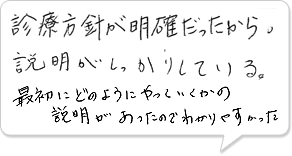 診療方針が明確だったから。
説明がしっかりしている。
最初にどのようにやっていくかの
説明があったのでわかりやすかった